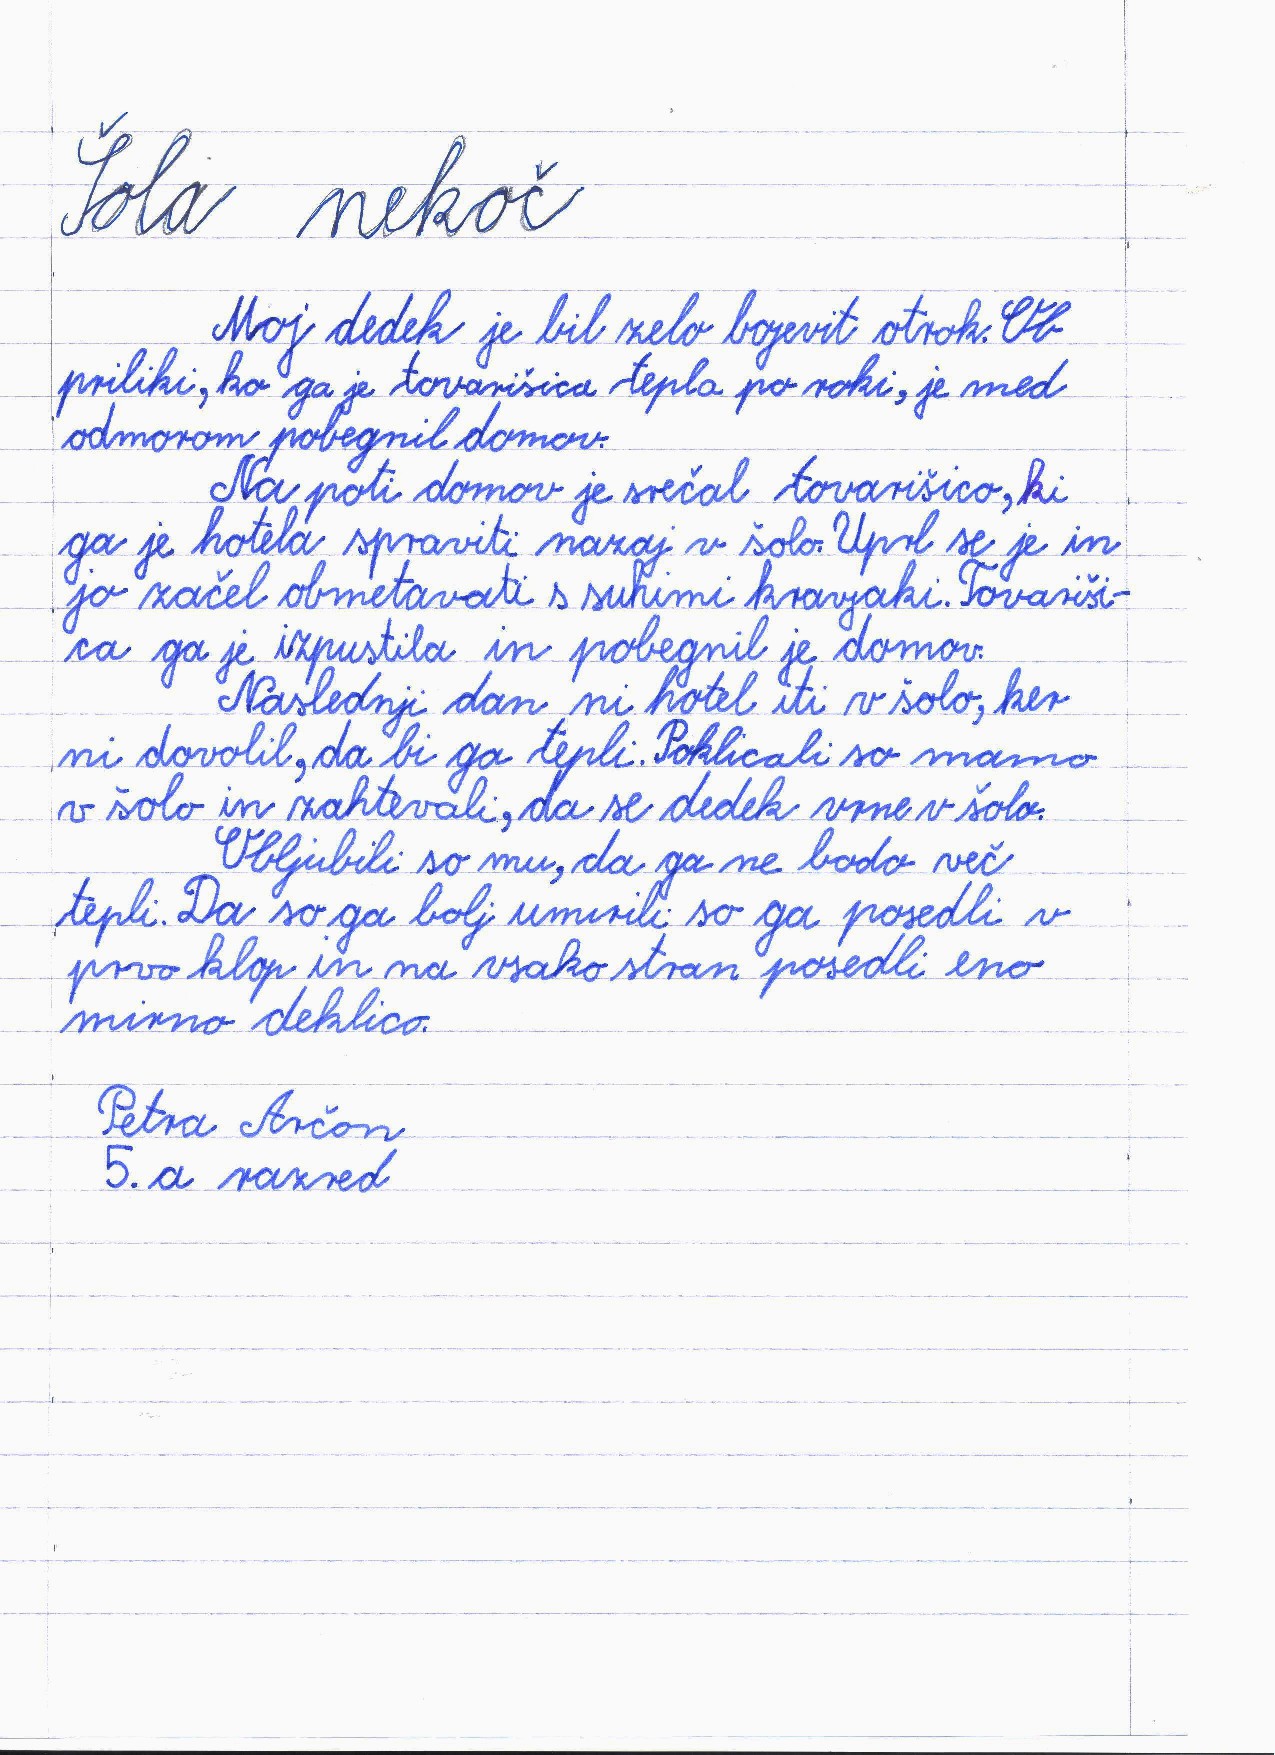 Šola nekoč
Moj dedek je bil zelo bojevit otrok. Ob
priliki, ko ga je tovarišica tepla po roki, je med
odmorom pobegnil domov.
Na poti domov je srečal tovarišico, ki
ga je hotela spraviti nazaj v šolo. Uprl se je in
jo začel obmetavati s suhimi kravjaki. Tovariši-
ca ga je izpustila in pobegnil je domov.
Naslednji dan ni hotel iti v šolo, ker
ni dovolil, da bi ga tepli. Poklicali so mamo
v šolo in zahtevali, da se dedek vrne v šolo.
Obljubili so mu, da ga ne bodo več
tepli. Da so ga bolj umirili so ga posedli v
prvo klop in na vsako stran posedli eno
mirno deklico.
Petra Arčon
5. a razred